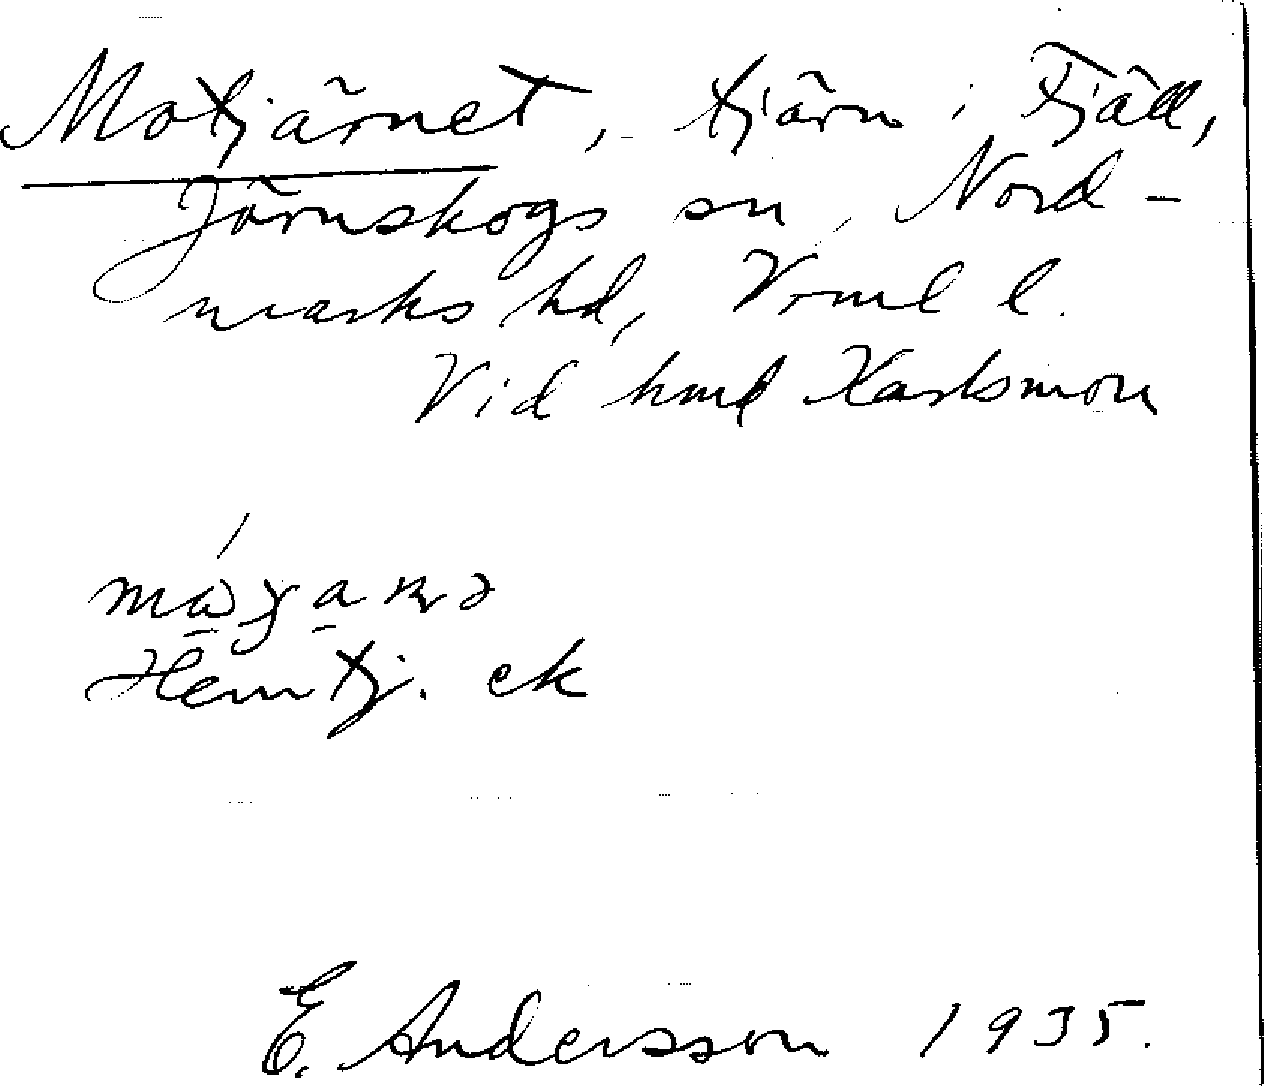 Motjärnet, tjärn i Fjäll,
Järnskogs sn, Nord-
marks hd, Vrml l.
Vid hmd Karlsmon
Hemtj. ek
E. Andersson 1935.